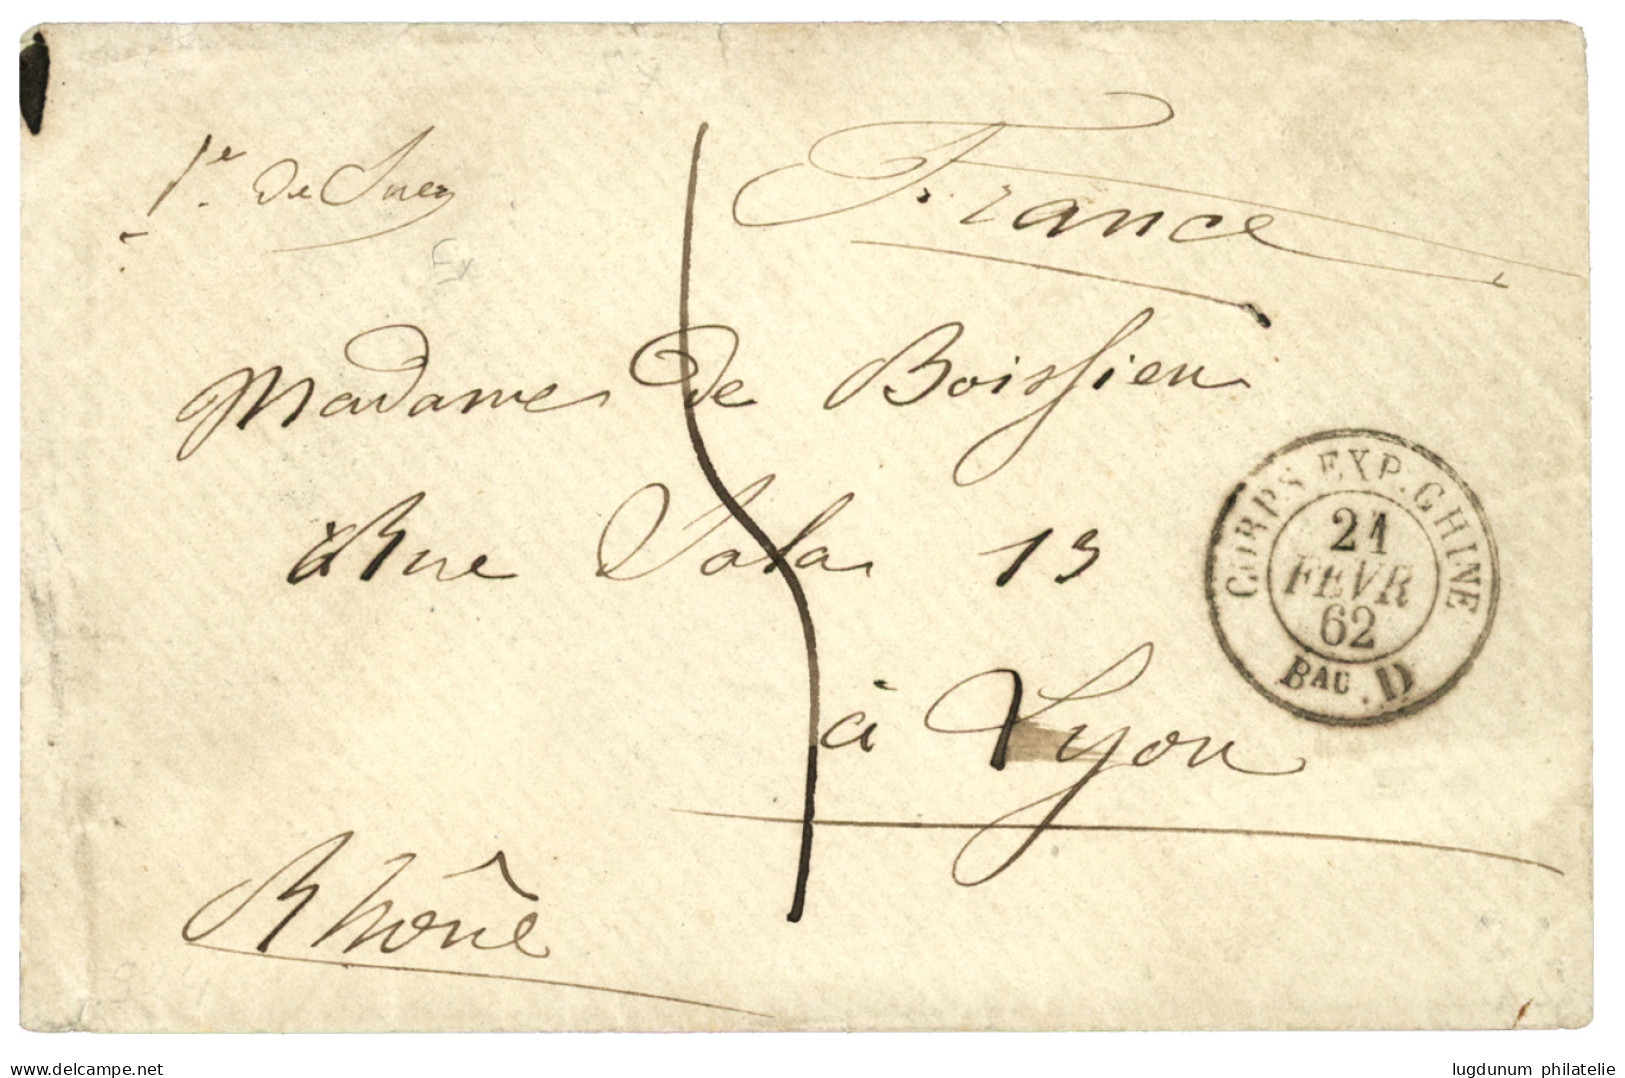 Ve. de Suez
France
Madame de Boissieu
à Rue Sala 13
à Lyon
Rhône
CORPS EXP. CHINE
21
FEVR
62
BAU. D
delcampe.net
lugdunum philatelie